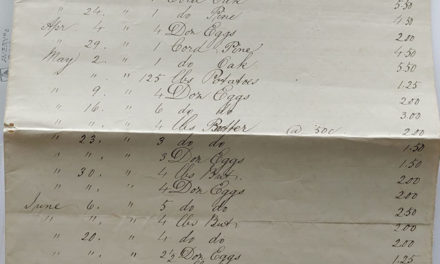 " " " 1 Cord Oak 5.50
" 24. " 1 do Pine 4.50
Apr 4 " 4 Doz Eggs 2.00
" 29. " 1 Cord Pine 4.50
May 2 " 1 do Oak 5.50
" " " 125 lbs Potatoes 1.25
" 9. " 4 Doz Eggs 2.00
" 16. " 6 do do 3.00
" " " 4 lbs Butter @ 50c 2.00
" 23. " 3 do do 1.50
" " " 3 Doz Eggs 1.50
" 30. " 4 lbs But. 2.00
" " " 4 Doz Eggs 2.00
June 6. " 5 do do 2.50
" " " 4 lbs But. 2.00
" 20. " 4 do do 2.00
" " " 2½ Doz Eggs 1.25